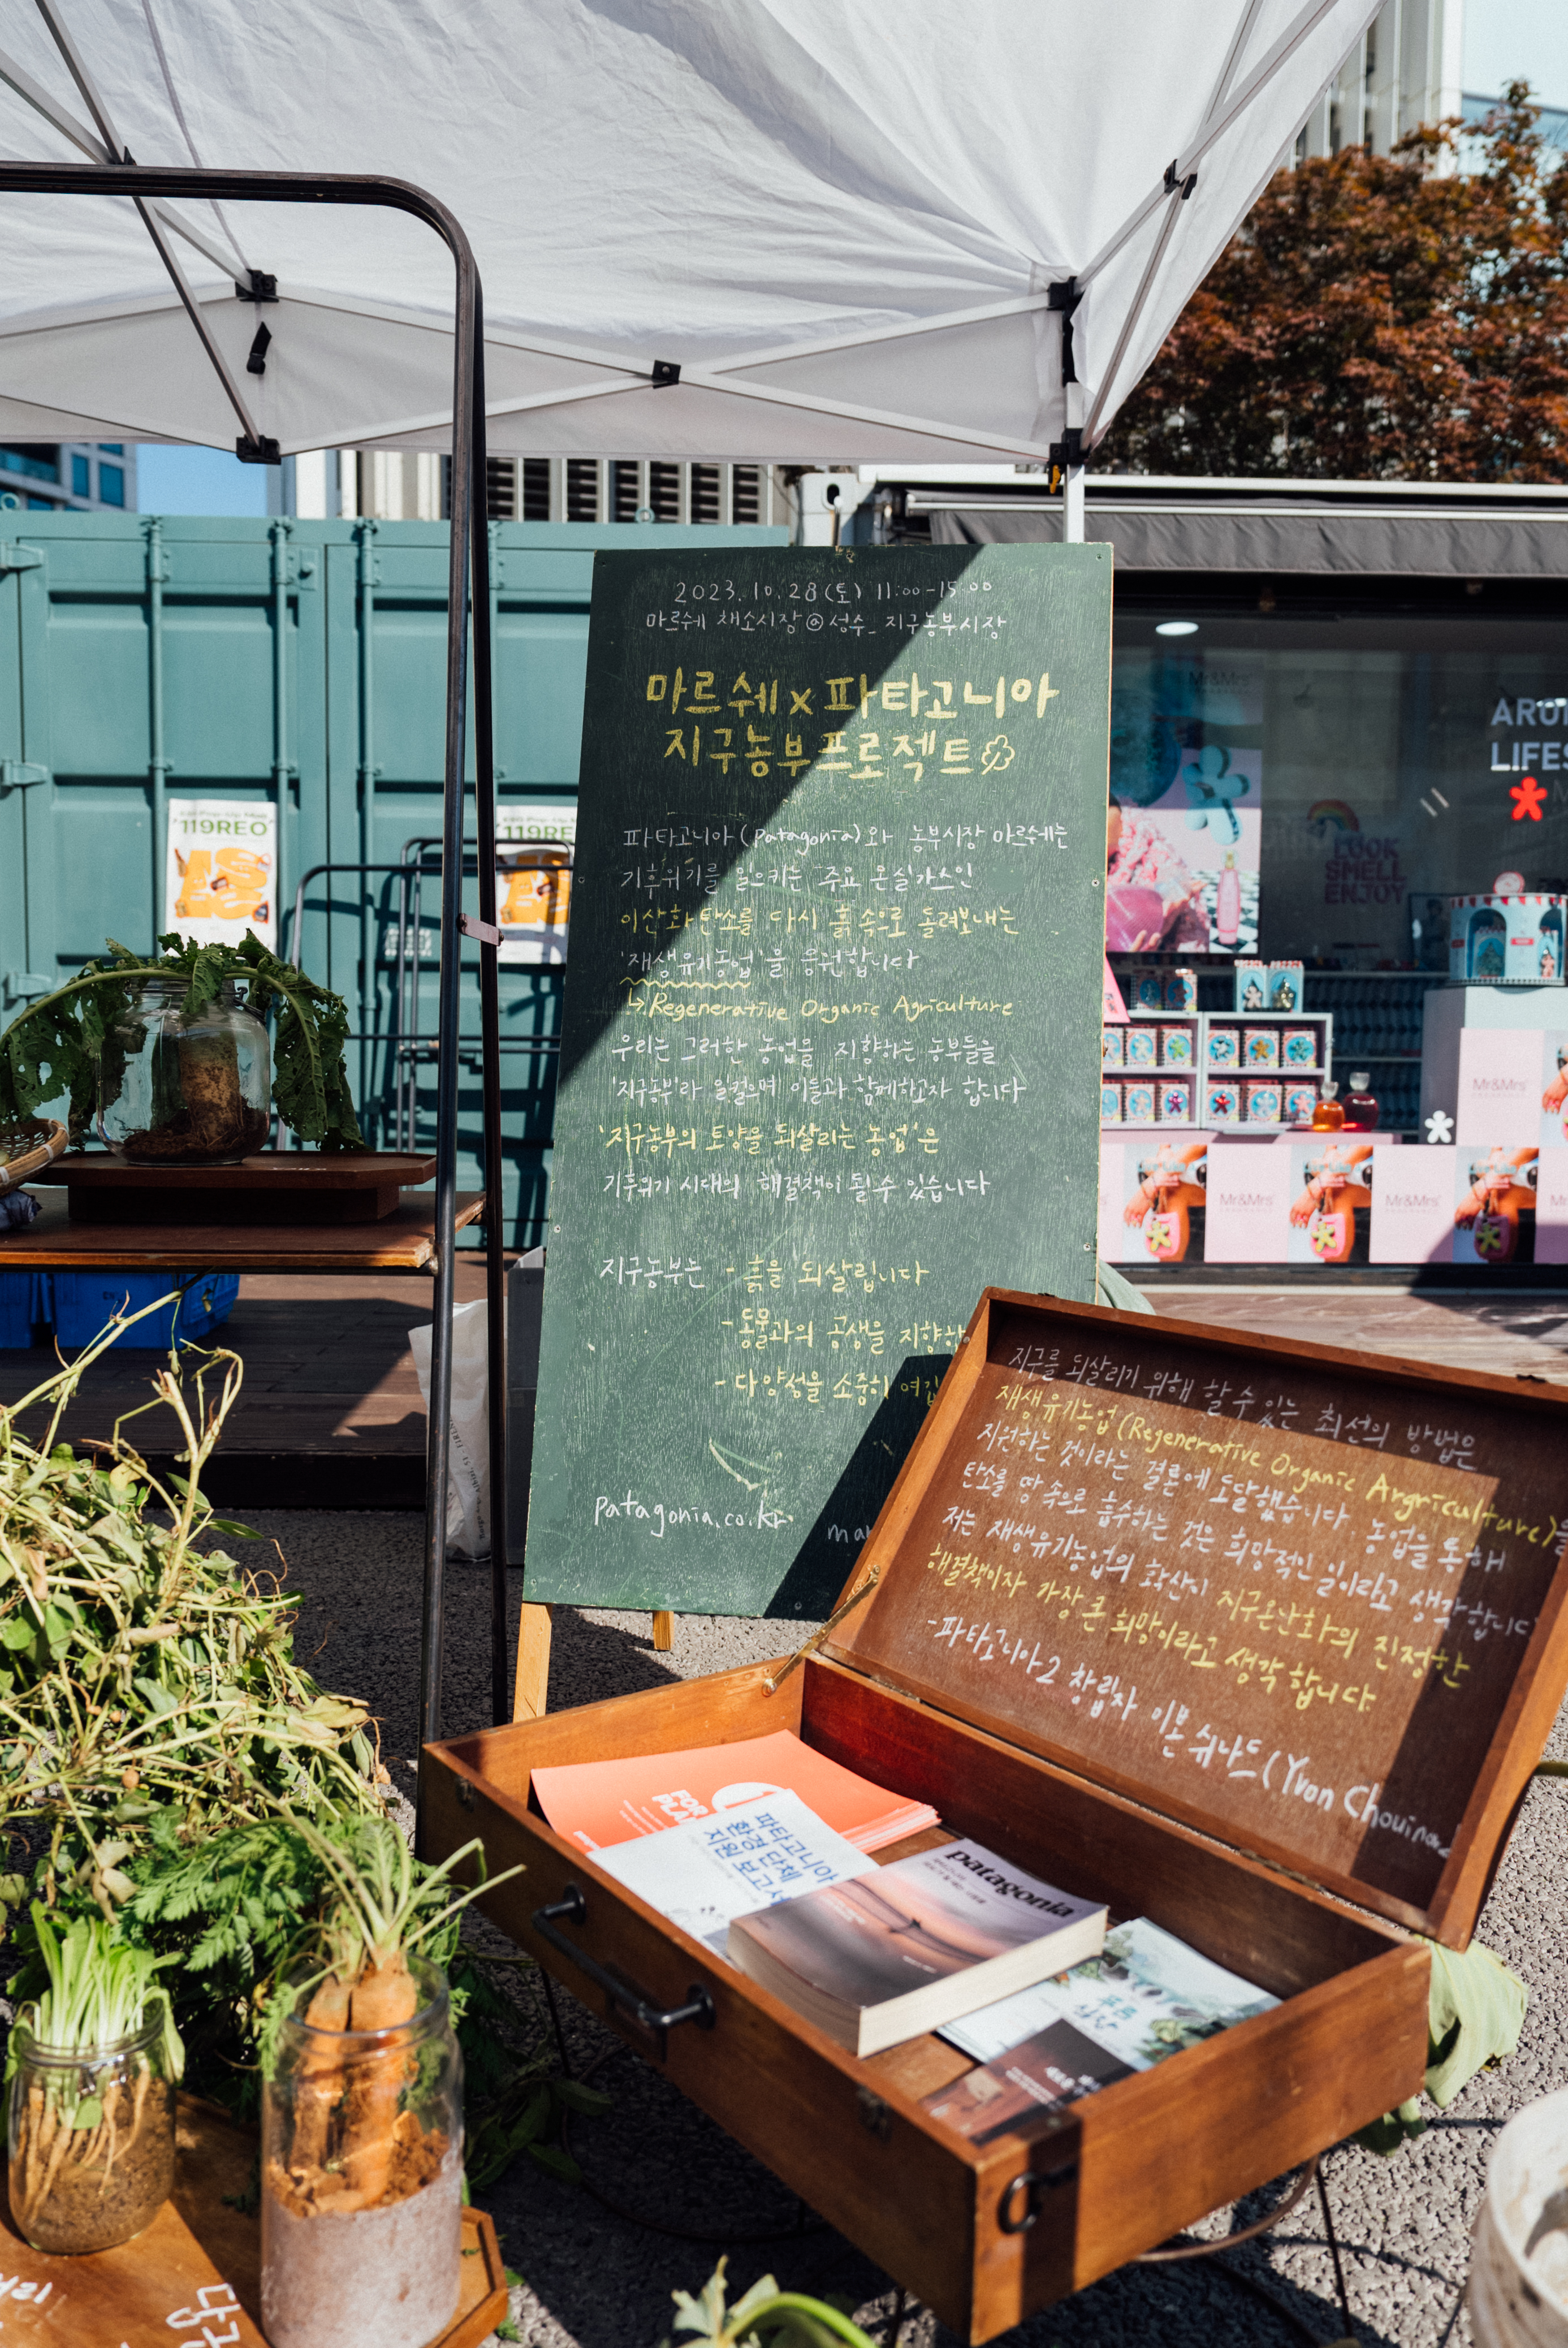 2023. 10. 28(토) 11:00-15:00
마르쉐 채소시장@성수_ 지구농부시장
마르쉐x파타고니아
지구농부프로젝트
파타고니아(patagonia)와 농부시장 마르쉐는
기후위기를 일으키는 주요 온실가스인
이산화탄소를 다시 흙 속으로 돌려보내는
'재생유기농업'을 응원합니다
↳Regenerative Organic Agriculture
우리는 그러한 농업을 지향하는 농부들을
'지구농부'라 일컬으며 이들과 함께하고자 합니다
'지구농부의 토양을 되살리는 농업'은
기후위기 시대의 해결책이 될 수 있습니다
지구농부는 - 흙을 되살립니다
- 동물과의 공생을 지향합
- 다양성을 소중히 여깁
patagonia.co.kr
mar
지구를 되살리기 위해 할 수 있는 최선의 방법은
재생유기농업(Regenerative Organic Argriculture)을
지원하는 것이라는 결론에 도달했습니다. 농업을 통해
탄소를 땅 속으로 흡수하는 것은 희망적인 일이라고 생각합니다
저는 재생유기농업의 확산이 지구온난화의 진정한
해결책이자 가장 큰 희망이라고 생각합니다.
-파타고니아 창립자 이본 쉬나드(Yvon Chouinard
파타고니아
환경 단체
지원 보고서
patagonia
119REO
119RE
Mr&Mrs
LOOK
SMELL
ENJOY
ARO
LIFES
Mr&Mrs
Mr&Mrs
Mr&Mrs
당근